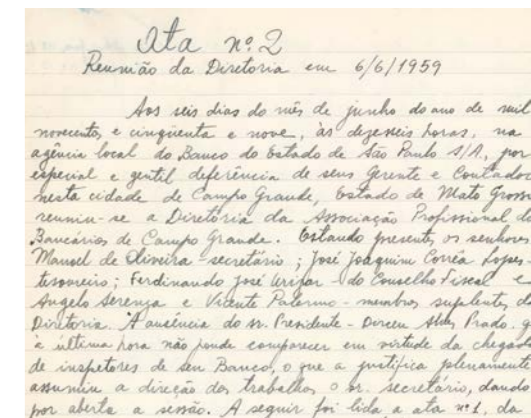 Ata nº 2
Reunião da Diretoria em 6/6/1959
Aos seis dias do mês de junho do ano de mil
novecentos e cinqüenta e nove, às dezesseis horas, na
agência local do Banco do Estado de São Paulo S/A, por
especial e gentil deferência de seus Gerente e Contador
nesta cidade de Campo Grande, Estado de Mato Grosso
reuniu-se a Diretoria da Associação Profissional de
Bancários de Campo Grande. Estando presentes, os senhores
Manoel de Oliveira - secretário; José Joaquim Corrêa Lopes -
tesoureiro; Ferdinando José - do Conselho Fiscal e
Angelo Serenza e Vicente Palermo - membros suplentes da
Diretoria. A ausência do sr. Presidente - Dirceu Prado, q
à última hora não poude comparecer em virtude da chegada
de inspetores de seu Banco, o que a justifica plenamente
assumiu a direção dos trabalhos o sr. secretário, dando
por aberta a sessão. A seguir foi lida a ata nº 1, da